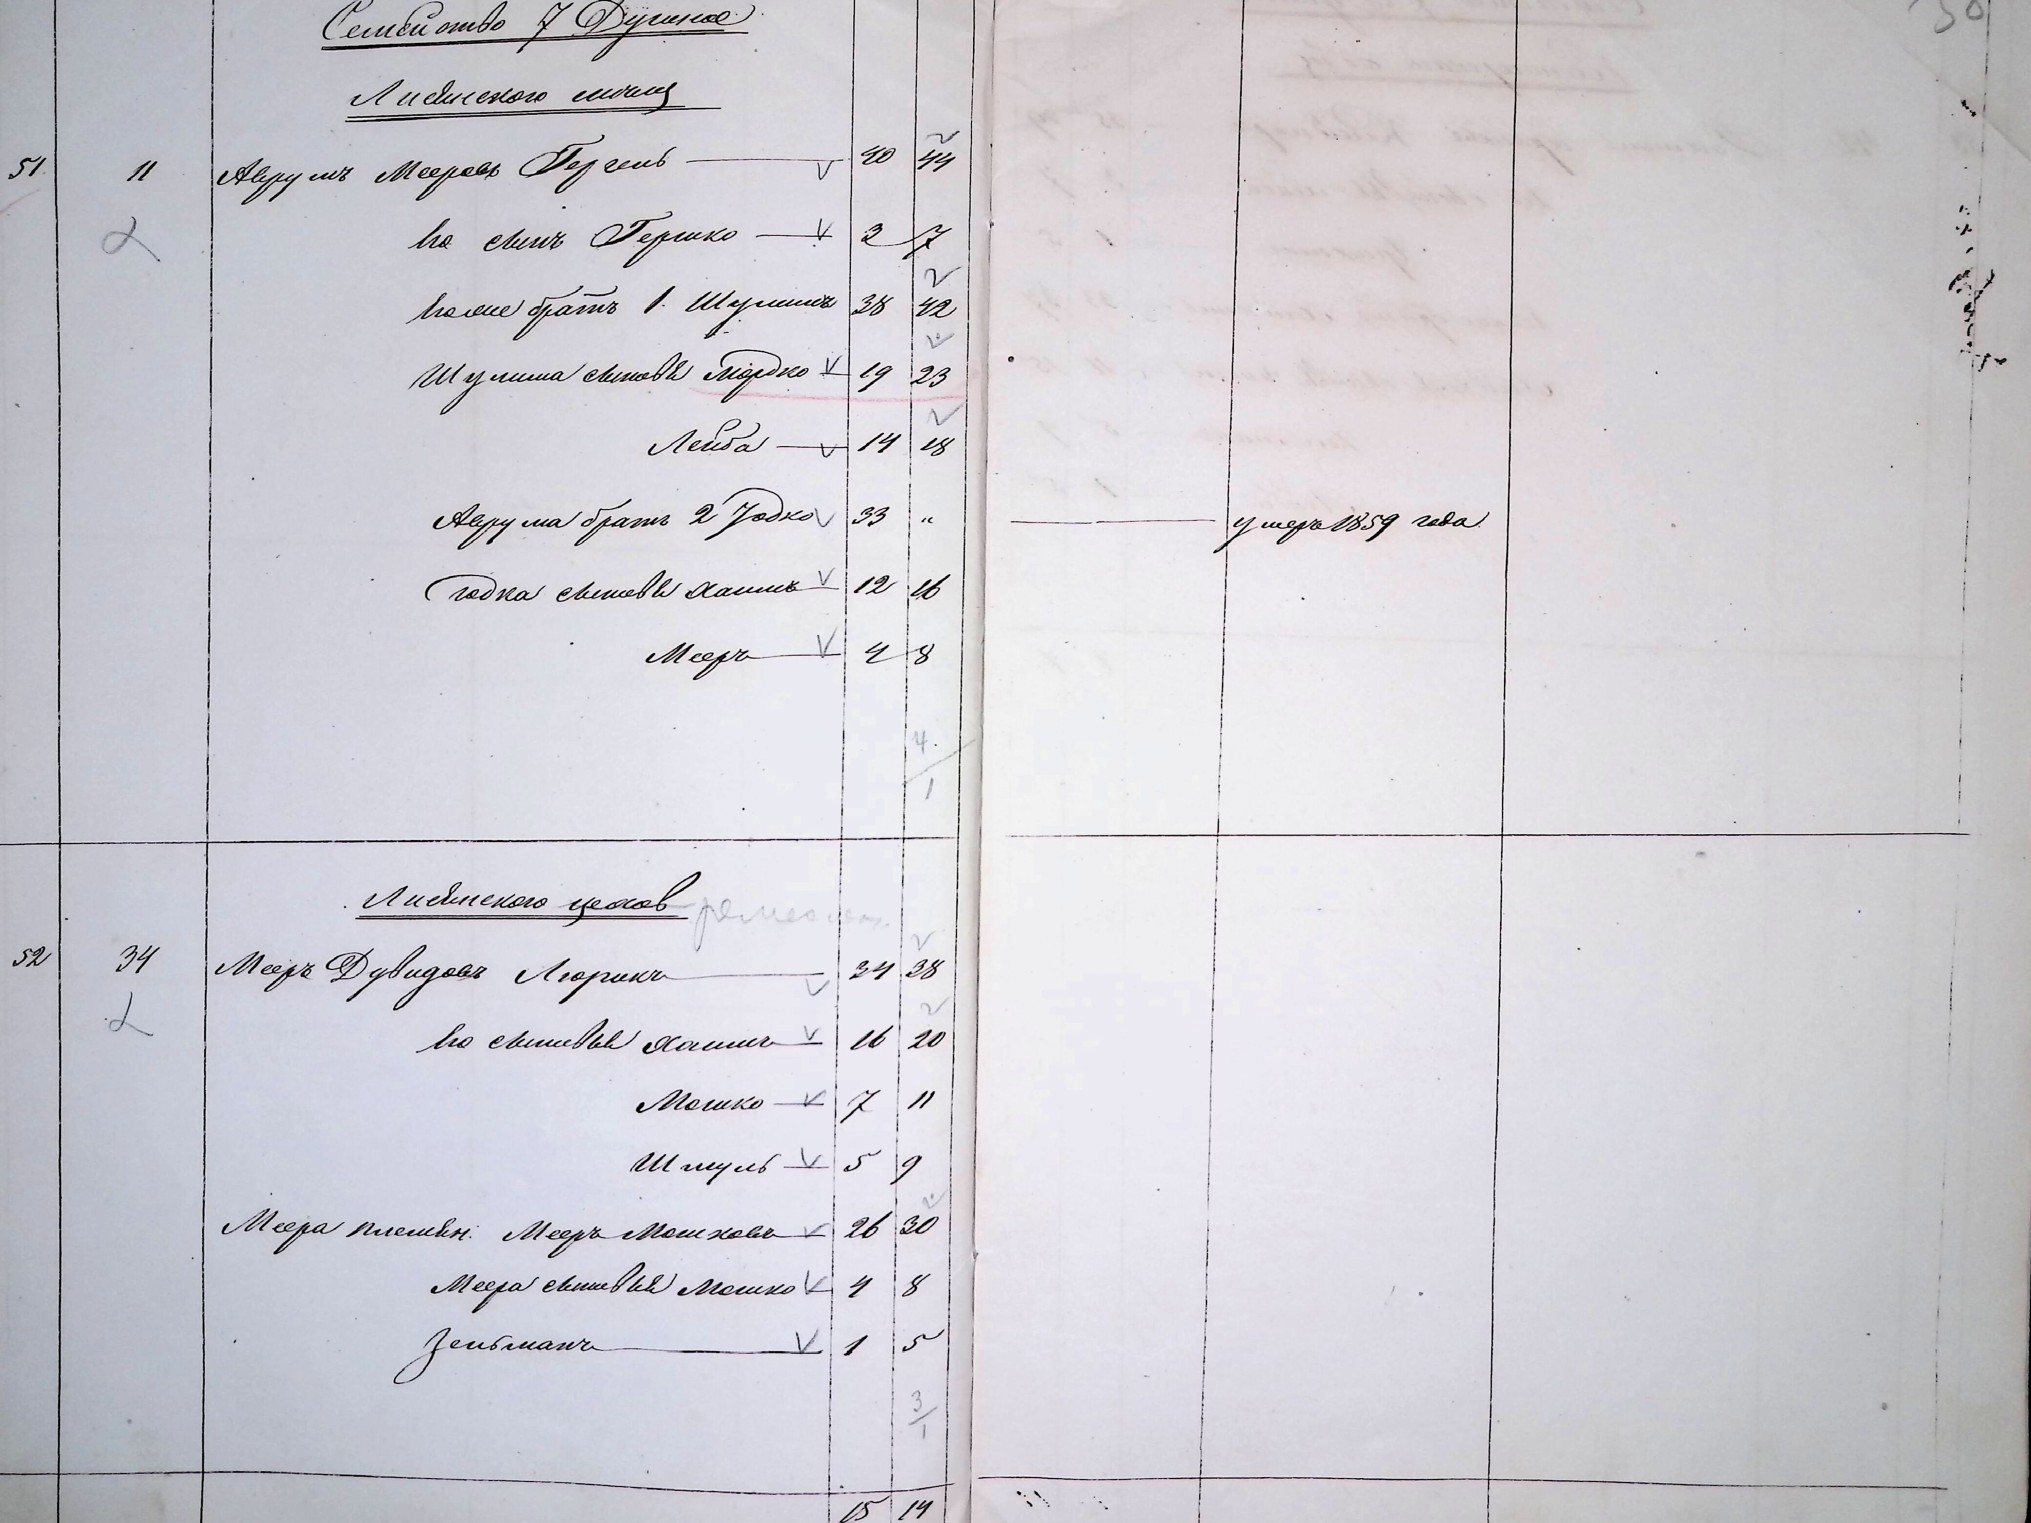 Семейство 7 Душное
Лисянского мѣщ
51 11 Аврумъ Мееровъ Герчень 40 44
Его сынъ Гершко 3 7
Егоже братъ 1. Шулимъ 38 42
Шулима сыновья Мордко 19 23
Лейба 14 18
Аврума братъ 2 Іодко 33 " умеръ 1859 года
Іодка сыновья Хаимъ 12 16
Мееръ 4 8
4
1
Лисянского цехов ремеслен.
52 34 Мееръ Дувидовъ Люрикъ 34 38
Его сыновья Хаимъ 16 20
Мошко 7 11
Шмуль 5 9
Меера племян. Мееръ Мошковъ 26 30
Меера сыновья Мошко 4 8
Зельманъ 1 5
3
1
15 14